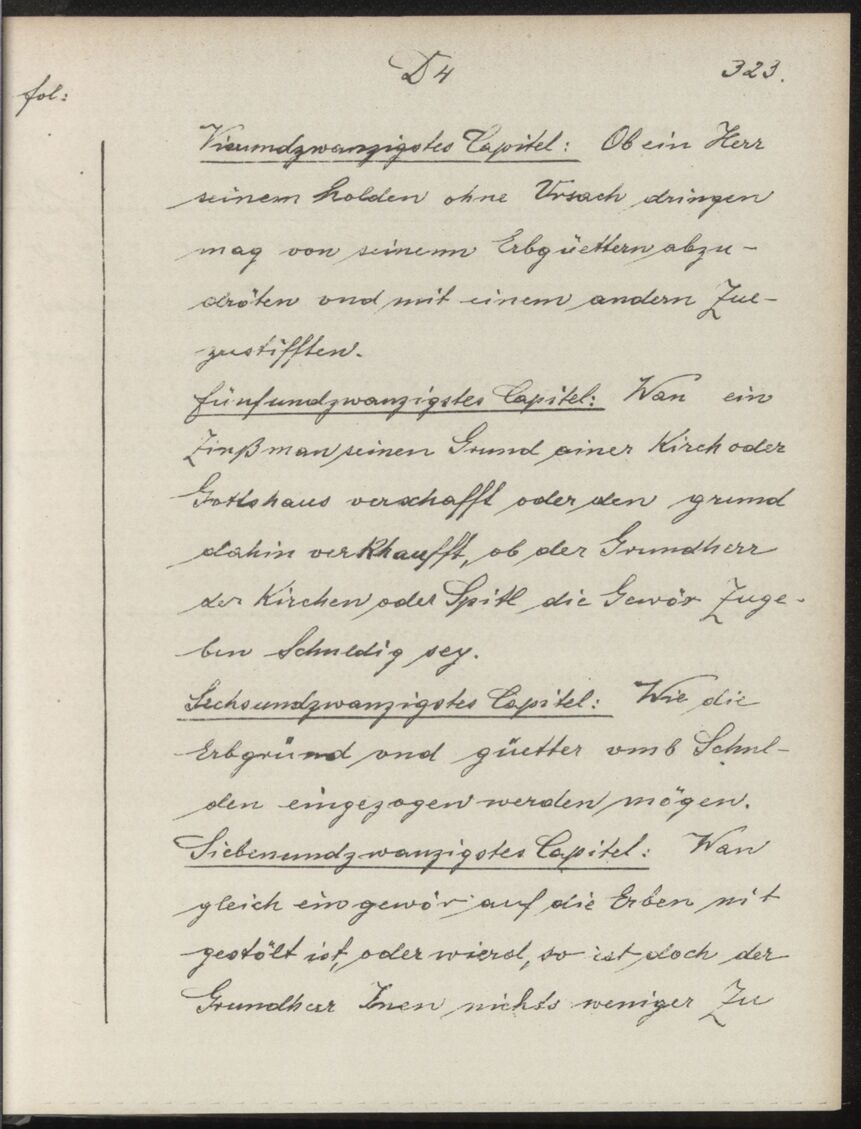 D4 323.
fol:
Vierundzwanzigstes Capitel: Ob ein Herr
seinem holden ohne Vrsach dringen
mag von seinenn Erbgüettern abzu-
dröten vnd mit einem andern Zue-
zustifften.
fünfundzwanzigstes Capitel: Wan ein
Zinßman seinen Grund ainer Kirch oder
Gottshaus verschafft oder den grund
dahin verkhaufft, ob der Grundherr
der Kirchen oder Spitl die Gewör Zuge-
ben Schuldig sey.
Sechsundzwanzigstes Capitel: Wie die
Erbgründ vnd güetter vmb Schul-
den eingezogen werden mögen.
Siebenundzwanzigstes Capitel: Wan
gleich ein gewör auf die Erben nit
gestölt ist, oder wierd, so ist doch der
Grundherr Inen nichts weniger Zu